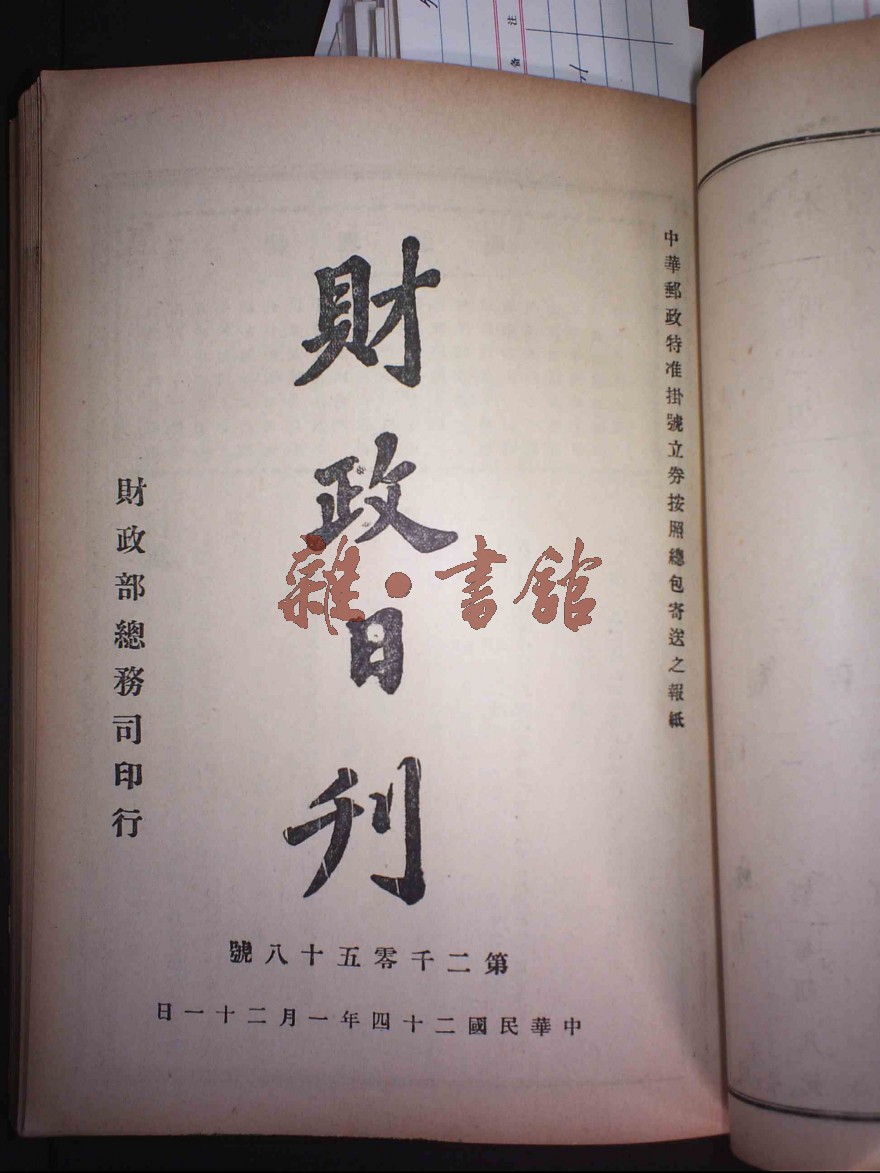 中華郵政特准掛號立券按照總包寄送之報紙
財政日刊
財政部總務司印行
第二千零五十八號
中華民國二十四年一月二十一日
雜·書館
注